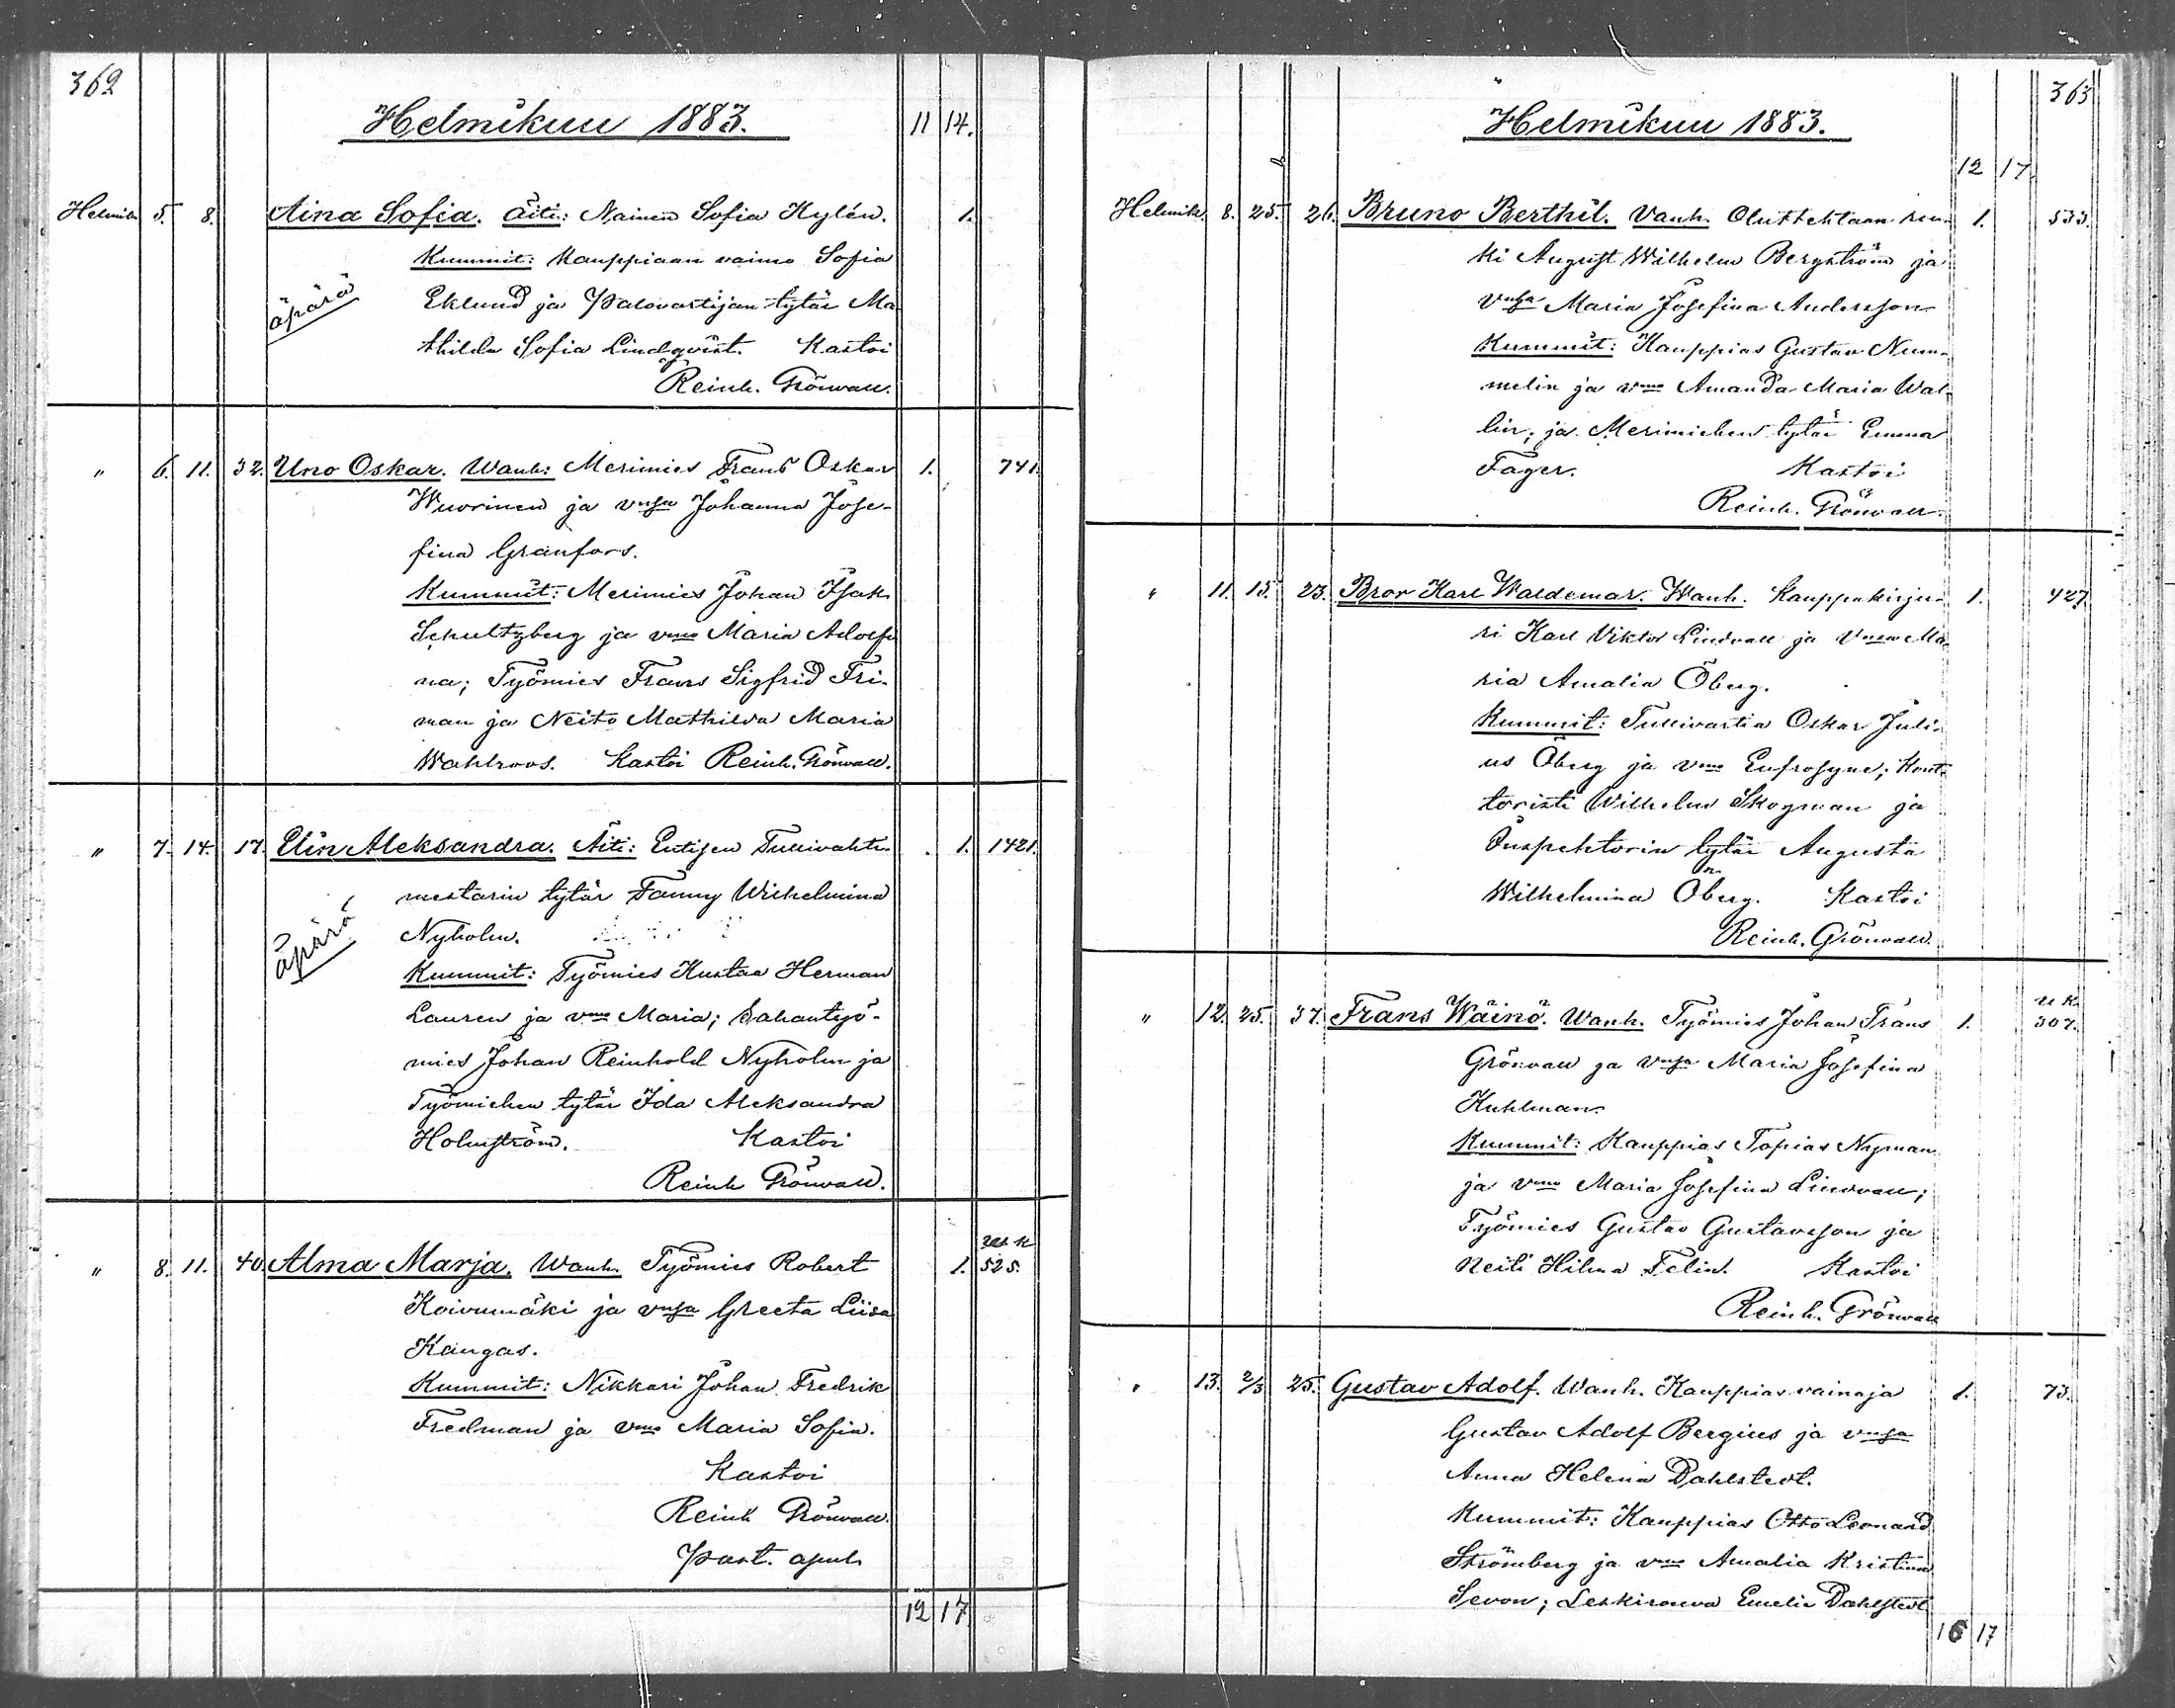 362
Helmikuu 1883. 11 14.
Helmik. 5. 8. Aina Sofia. Äiti: Nainen Sofia Kylén. 1.
Kummit: Kauppiaan vaimo Sofia
äpärä Eklund ja Palovartijan tytär Ma
thilda Sofia Lindqvist. Kastoi
Reinh. Grönvall.
" 6. 11. 32. Uno Oskar. Wanh: Merimies Frans Oskar 1. 741.
Wuorinen ja vnsa Johanna Jose-
fina Granfors.
Kummit: Merimies Johan Isak
Schultzberg ja vmo Maria Adolfi
na; Työmies Frans Sigfrid Fri-
man ja Neito Mathilda Maria
Wahlroos. Kastoi Reinh. Grönvall.
" 7. 14. 17. Elin Aleksandra. Äiti: Entisen Tullivahti- 1. 1421.
mestarin tytär Fanny Wilhelmina
äpärä Nyholm.
Kummit: Työmies Kustaa Herman
Lauren ja vmo Maria; Sahantyö-
mies Johan Reinhold Nyholm ja
Työmiehen tytär Ida Aleksandra
Holmström. Kastoi
Reinh Grönvall.
" 8. 11. 40. Alma Marja. Wanh. Työmies Robert 1. 525.
Koivumäki ja vnsa Greeta Liisa
Kangas.
Kummit: Nikkari Johan Fredrik
Fredman ja vmo Maria Sofia.
Kastoi
Reinh Grönvall.
Past. apul.
12 17
363
Helmikuu 1883.
12 17.
Helmik. 8. 25. 26. Bruno Berthil. Vanh. Oluttehtaan ren- 1. 533.
ki August Wilhelm Bergström ja
vnsa Maria Josefina Andersson
Kummit: Kauppias Gustav Num-
melin ja vmo Amanda Maria Wal-
lin; ja Merimiehen tytär Emma
Fager. Kastoi
Reinh. Grönvall.
" 11. 15. 23. Bror Karl Waldemar. Wanh. Kauppakirju- 1. 427.
ri Karl Viktor Lindvall ja Vnsa Ma
ria Amalia Öberg.
Kummit: Tullivartia Oskar Juli-
us Öberg ja vmo Eufrosyne; Kont-
toristi Wilhelm Skogman ja
Inspehtorin tytär Augusta
Wilhelmina Öberg. Kastoi
Reinh. Grönvall.
" 12. 25. 37. Frans Wäinö. Wanh. Työmies Johan Frans 1. u k. 307.
Grönvall ja vnsa Maria Josefina
Kuhlman.
Kummit: Kauppias Topias Nyman
ja vmo Maria Josefina Lindvall;
Työmies Gustav Gustavsson ja
Neiti Hilma Felin. Kastoi
Reinh. Grönvall
" 13. 2/3 25. Gustav Adolf. Wanh. Kauppias vainaja 1. 73.
Gustav Adolf Bergius ja vnsa
Anna Helena Dahlstedt.
Kummit: Kauppias Otto Leonard
Strömberg ja vmo Amalia Kristina
Sevon; Leskirouva Emelie Dahlstedt
16 17